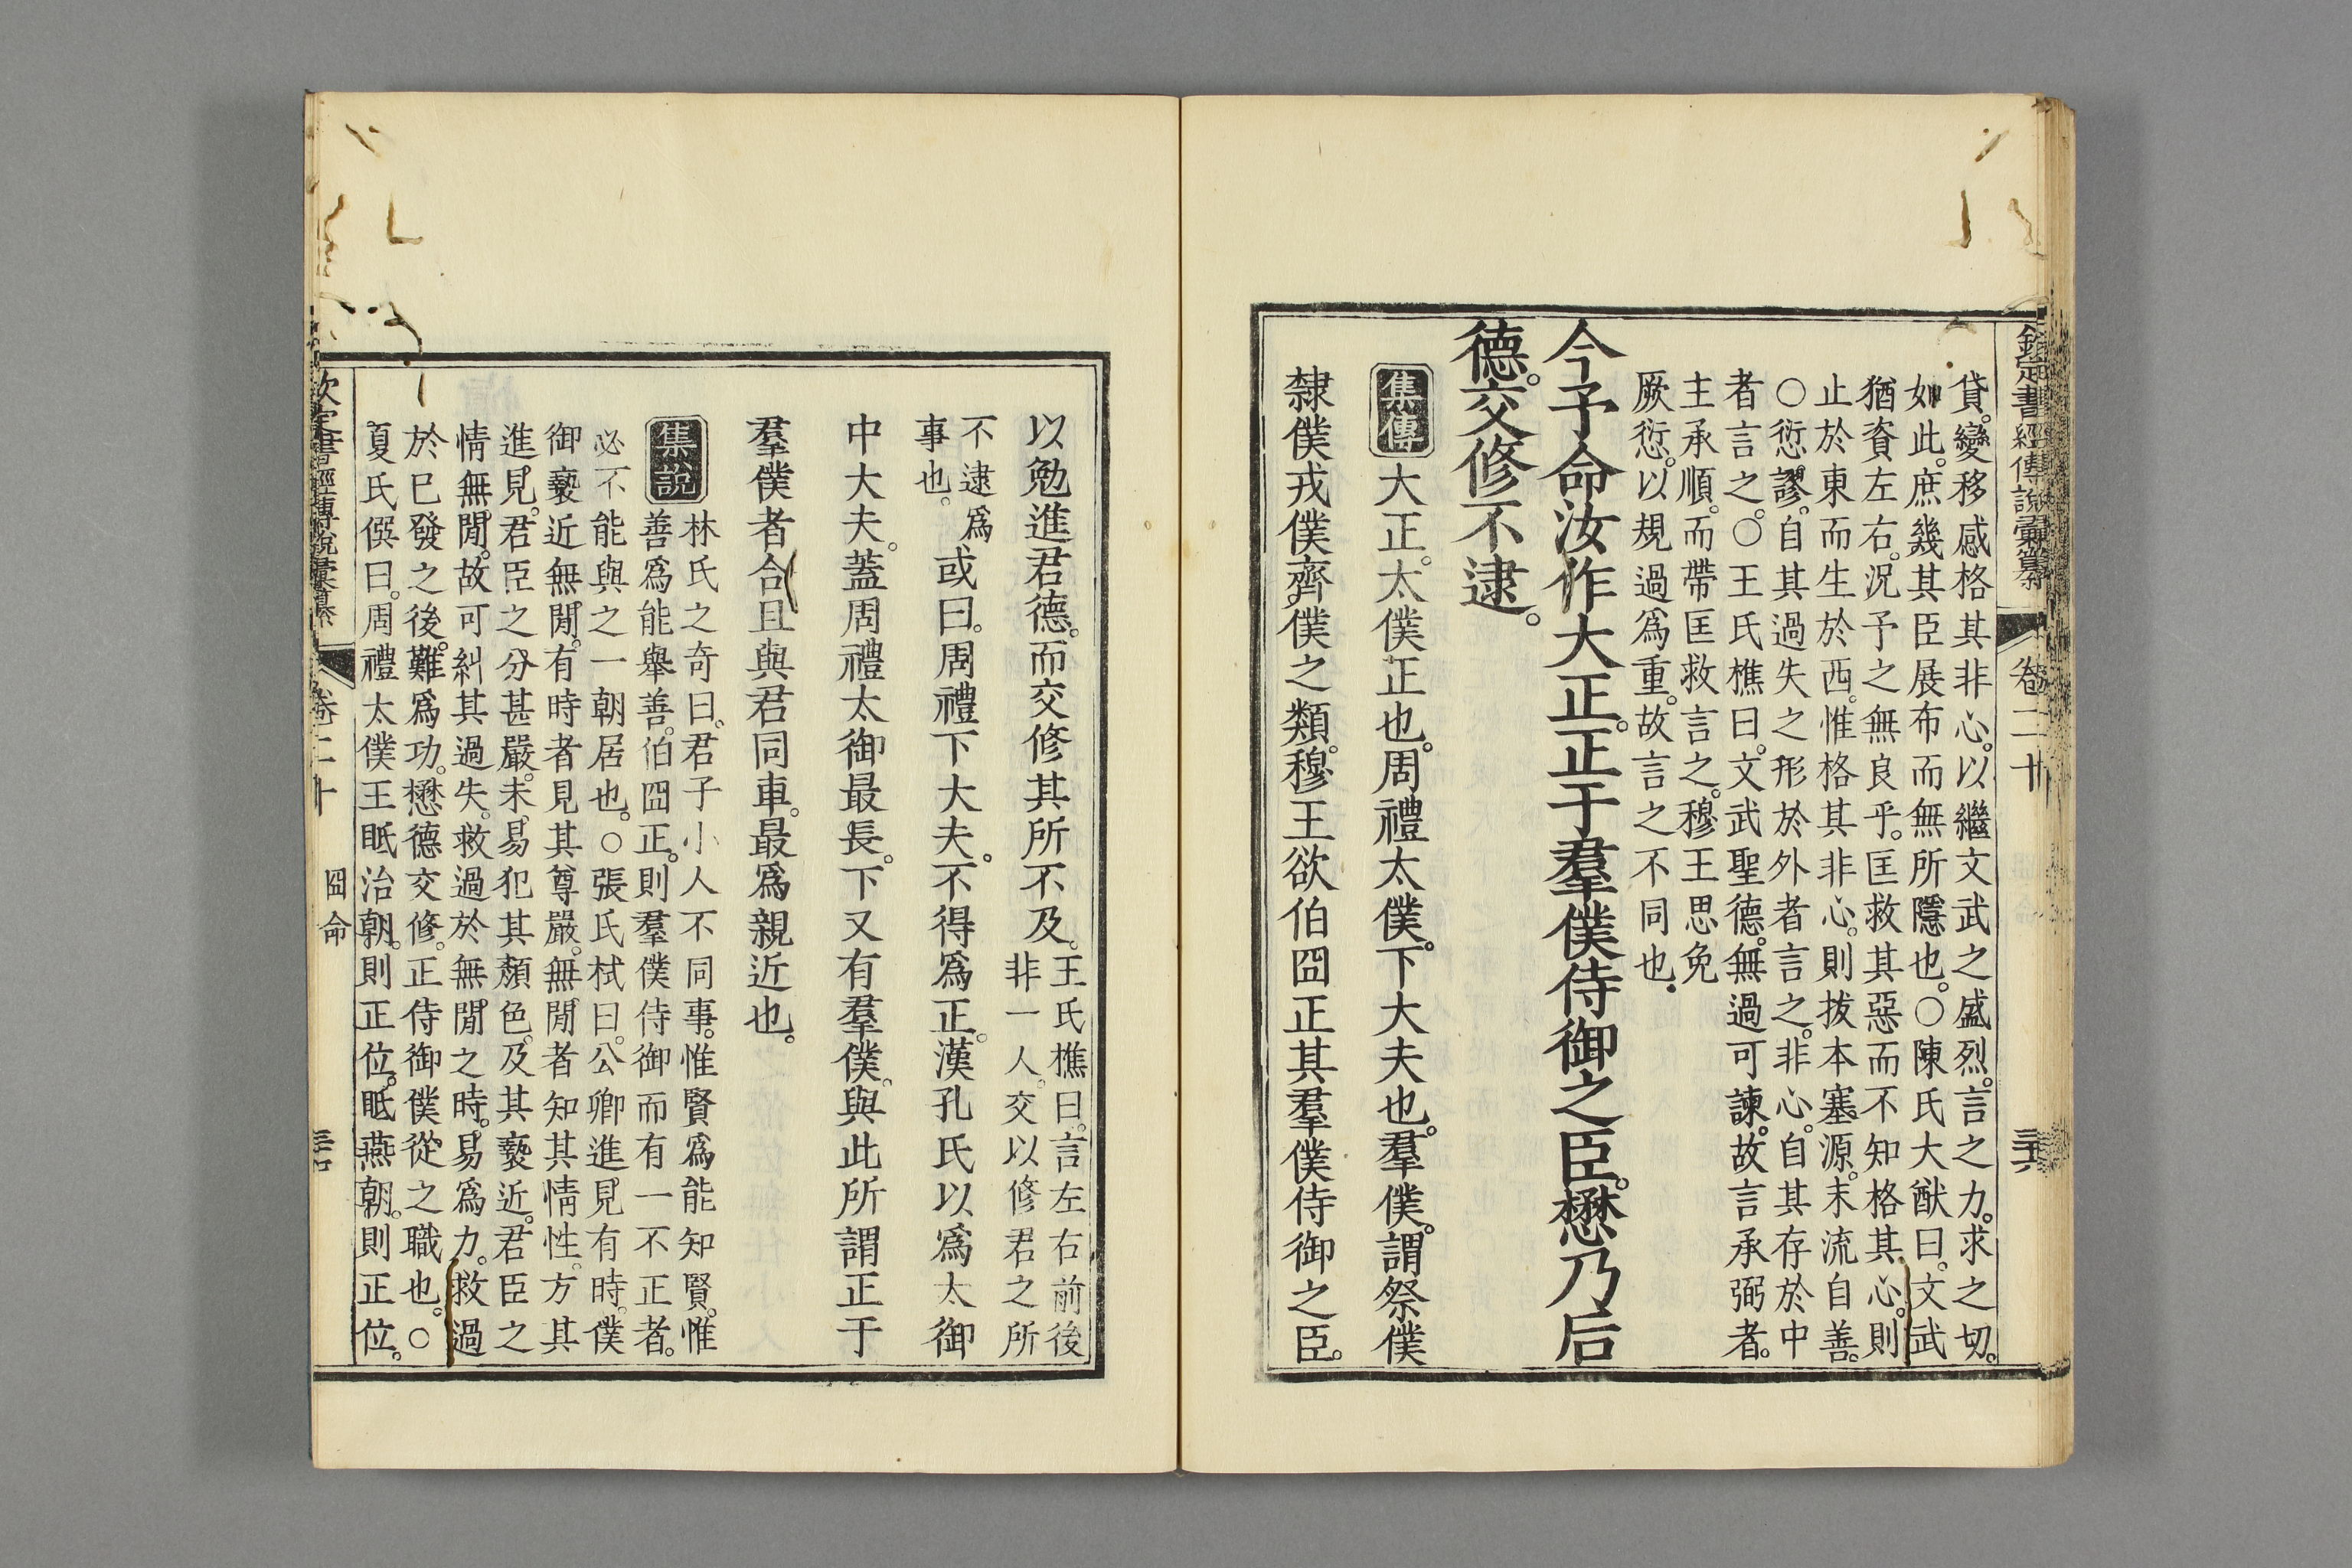 欽定書經傳說彙纂 卷二十
貸。變移感格其非心。以繼文武之盛烈。言之力。求之切。
如此。庶幾其臣展布而無所隱也。○陳氏大猷曰。文武
猶資左右。況予之無良乎。匡救其惡而不知格其心。則
止於東而生於西。惟格其非心。則拔本塞源。末流自善。
○愆謬。自其過失之形於外者言之。非心。自其存於中
者言之。○王氏樵曰。文武聖德。無過可諫。故言承弼者。
主承順。而帶匡救言之。穆王思免
厥愆。以規過爲重。故言之不同也。
今予命汝作大正。正于羣僕侍御之臣。懋乃后
德。交修不逮。
集傳 大正。太僕正也。周禮太僕。下大夫也。羣僕。謂祭僕
隸僕戎僕齊僕之類。穆王欲伯冏正其羣僕侍御之臣。
以勉進君德。而交修其所不及。王氏樵曰。言左右前後
非一人。交以修君之所
不逮爲
事也。或曰。周禮下大夫。不得爲正。漢孔氏以爲太御
中大夫。蓋周禮太御最長。下又有羣僕。與此所謂正于
羣僕者合。且與君同車。最爲親近也。
集說 林氏之奇曰。君子小人不同事。惟賢爲能知賢。惟
善爲能舉善。伯冏正。則羣僕侍御而有一不正者。
必不能與之一朝居也。○張氏栻曰。公卿進見有時。僕
御褻近無閒。有時者見其尊嚴。無閒者知其情性。方其
進見。君臣之分甚嚴。未易犯其顏色。及其褻近。君臣之
情無閒。故可糾其過失。救過於無閒之時。易爲力。救過
於已發之後。難爲功。懋德交修。正侍御僕從之職也。○
夏氏僎曰。周禮太僕王眂治朝。則正位。眂燕朝。則正位。
欽定書經傳說彙纂 卷二十 冏命